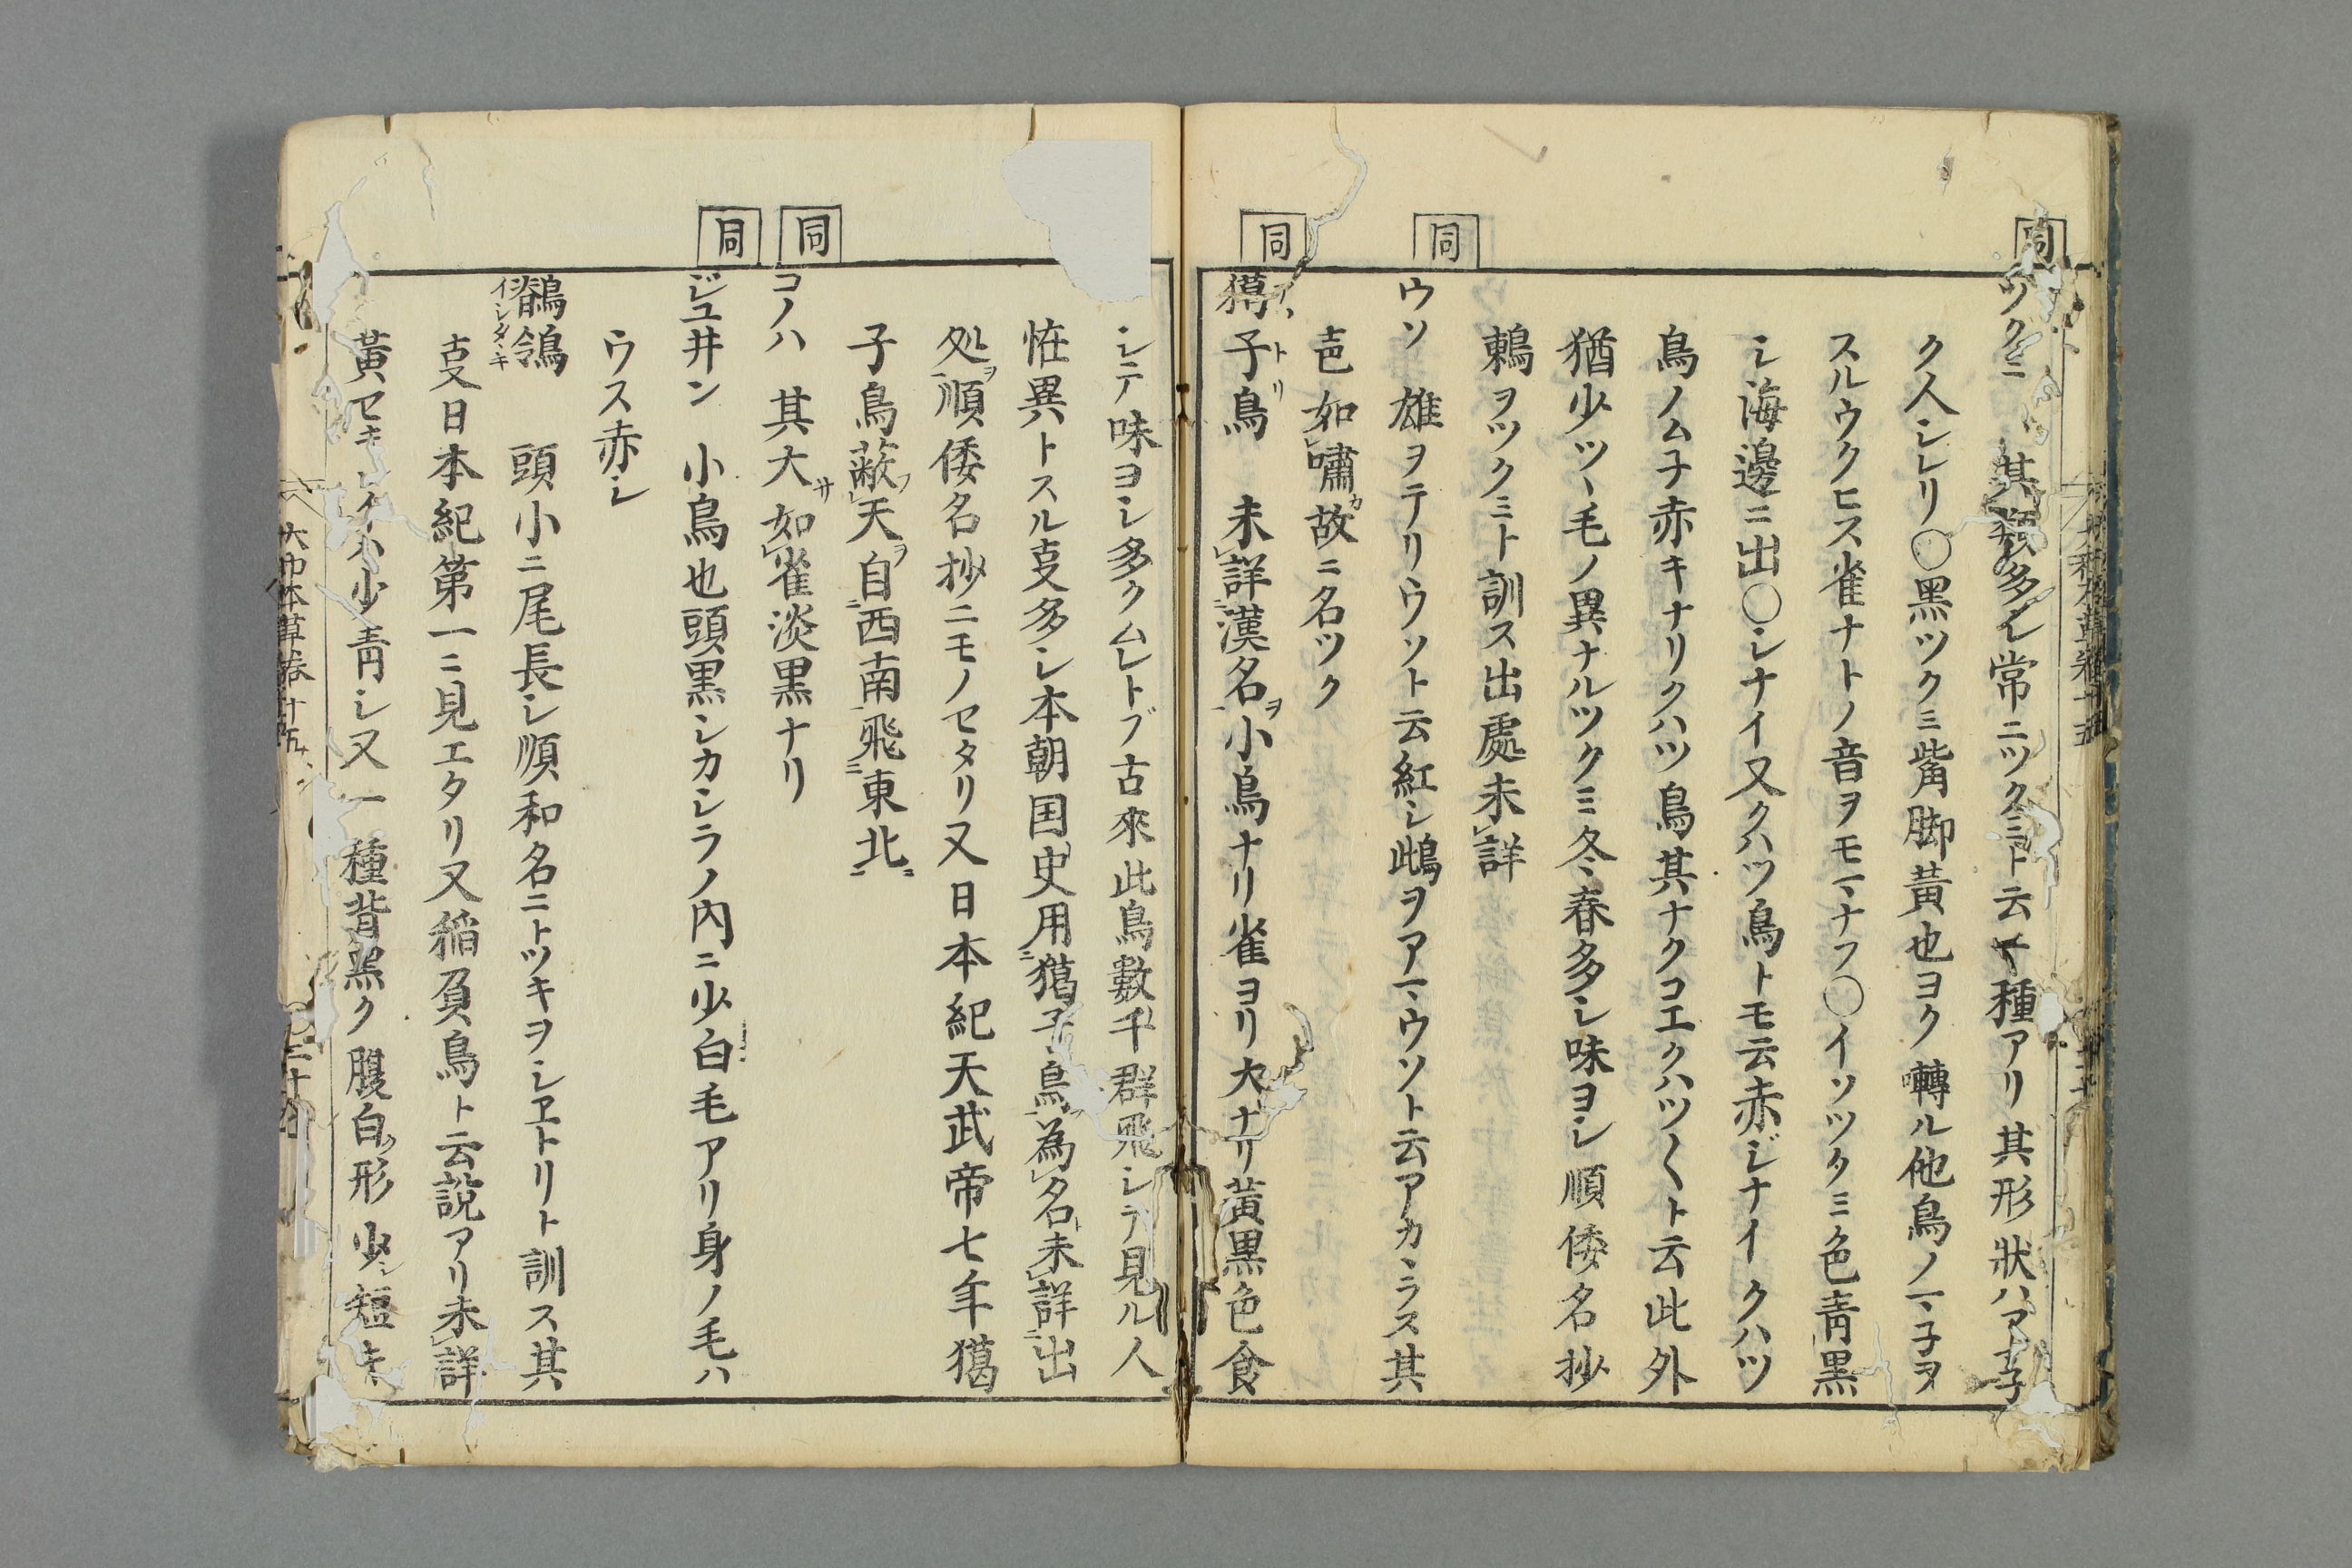 同
ツクミ 其類多シ常ニツクミト云一種アリ其形狀ハマ子
ク人シレリ○黑ツクミ觜脚黃也ヨク囀ル他鳥ノマ子ヲ
スルウクヒス雀ナトノ音ヲモマナフ○イソツクミ色靑黑
シ海邊ニ出○シナイ又クハツ鳥トモ云赤ジナイクハツ
鳥ノム子赤キナリクハツ鳥其ナクコエクハツ〱ト云此外
猶少ツヽ毛ノ異ナルツクミ冬春多シ味ヨシ順倭名抄
鶫ヲツクミト訓ス出處未詳
同
ウソ 雄ヲテリウソト云紅シ鴟ヲアマウソト云アカヽラス其
声如嘯故ニ名ツク
同
獦子鳥 未詳漢名小鳥ナリ雀ヨリ大ナリ黃黑色食
シテ味ヨシ多クムレトブ古來此鳥數千群飛シテ見ル人
恠異トスル叓多シ本朝国史用獦子鳥為名未詳出
処順倭名抄ニモノセタリ又日本紀天武帝七年獦
子鳥蔽天自西南飛東北
同
コノハ 其大如雀淡黑ナリ
同
ジユ井ン 小鳥也頭黑シカシラノ內ニ少白毛アリ身ノ毛ハ
ウス赤シ
鶺鴒 イシタヽキ 頭小ニ尾長シ順和名ニトツキヲシヱトリト訓ス其
叓日本紀第一ニ見エタリ又稲負鳥ト云説アリ未詳
黃セキレイハ少靑シ又一種背黑ク腹白ク形少シ短キ
大和本草卷十五